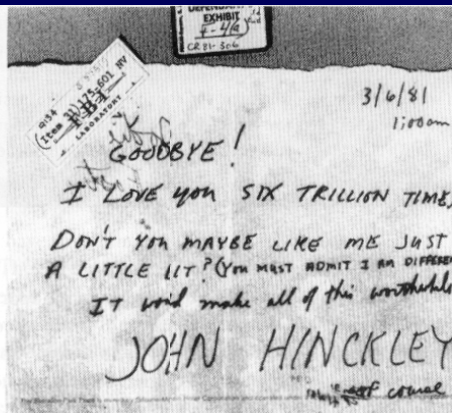 DEFENDANT'S
EXHIBIT
CR 81-306
LABORATORY
3/6/81
1:00am
GOODBYE!
I LOVE YOU SIX TRILLION TIMES
DON'T YOU MAYBE LIKE ME JUST
A LITTLE BIT? (YOU MUST ADMIT I AM DIFFEREN
IT would make all of this worthwhile
JOHN HINCKLEY
of course